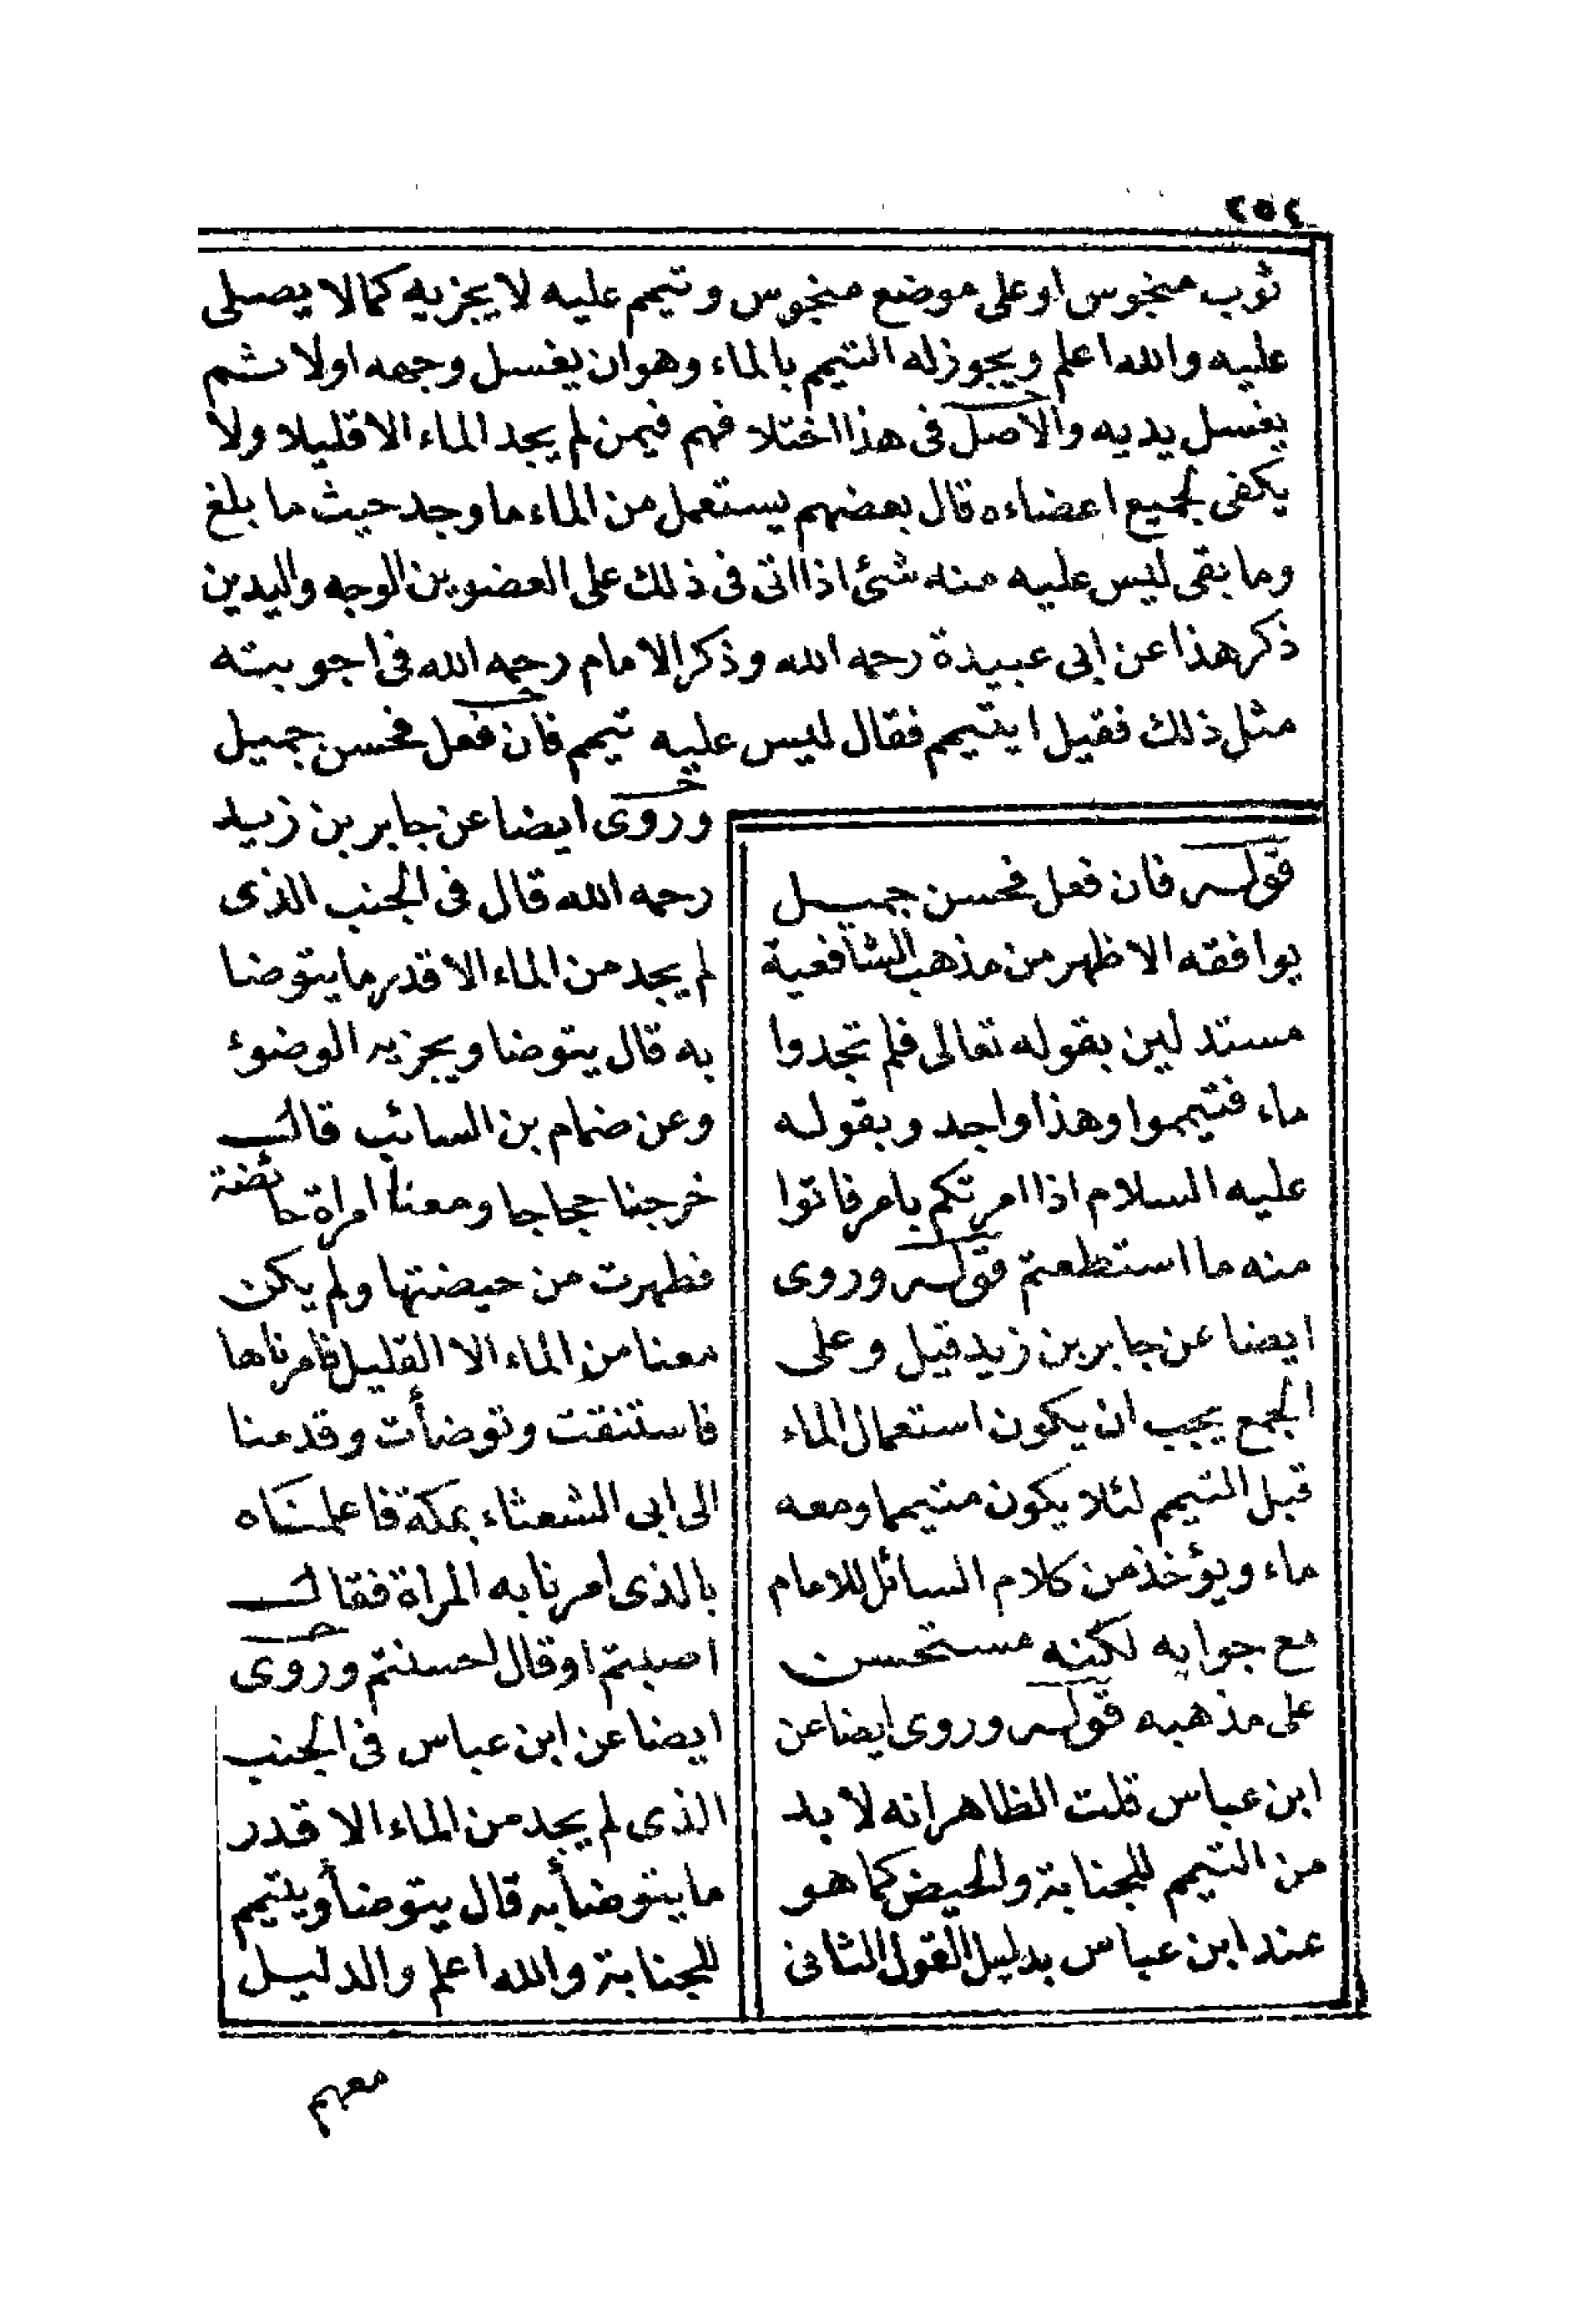 ٢٥٤
ثوب منجوس او على موضع منجوس وتيمم عليه لا يجزيه كما لا يصلى
عليه والله اعلم ويجوز له التيمم بالماء وهو ان يغسل وجهه اولا ثم
يغسل يديه والاصل فى هذا اختلافهم فيمن لم يجد الماء الا قليلا ولا
يكفى لجميع اعضاءه قال بعضهم يستعمل من الماء ما وجد حيث ما بلغ
وما بقى ليس عليه منه شئ اذا اتى فى ذلك على العضوين الوجه واليدين
ذكر هذا عن ابى عبيدة رحمه الله وذكر الامام رحمه الله فى اجوبيته
مثل ذلك فقيل ايتيمم فقال ليس عليه تيمم فان فعل فحسن جميل
وروى ايضا عن جابر بن زيد
رحمه الله قال فى الجنب الذى
لم يجد من الماء الا قدر ما يتوضا
به قال يتوضا ويجزيه الوضوء
وعن ضمام بن السائب قال
خرجنا حجاجا ومعنا امراة حائضة
فطهرت من حيضتها ولم يكن
معنا من الماء الا القليل فامرناها
فاستنقت وتوضأت وقدمنا
الى ابى الشعثاء بمكة فاعلمناه
بالذى امرنا به المراة فقال
اصبتم او قال احسنتم وروى
ايضا عن ابن عباس فى الجنب
الذى لم يجد من الماء الا قدر
ما يتوضأ به قال يتوضأ ويتيمم
للجنابة والله اعلم والدليل
قوله فان فعل فحسن جميل
يوافقه الاظهر من مذهب الشافعية
مستدلين بقوله تعالى فلم تجدوا
ماء فتيمموا وهذا واجد وبقوله
عليه السلام اذا امرتكم بامر فاتوا
منه ما استطعتم قوله وروى
ايضا عن جابر بن زيد قيل وعلى
الجمع يجب ان يكون استعمال الماء
قبل التيمم لئلا يكون متيمما ومعه
ماء ويؤخذ من كلام السائل للامام
مع جوابه لكنه مستحسن
على مذهبه قوله وروى ايضا عن
ابن عباس قلت الظاهر انه لا بد
من التيمم للجنابة والحيض كما هو
عند ابن عباس بدليل القول الثانى
معهم